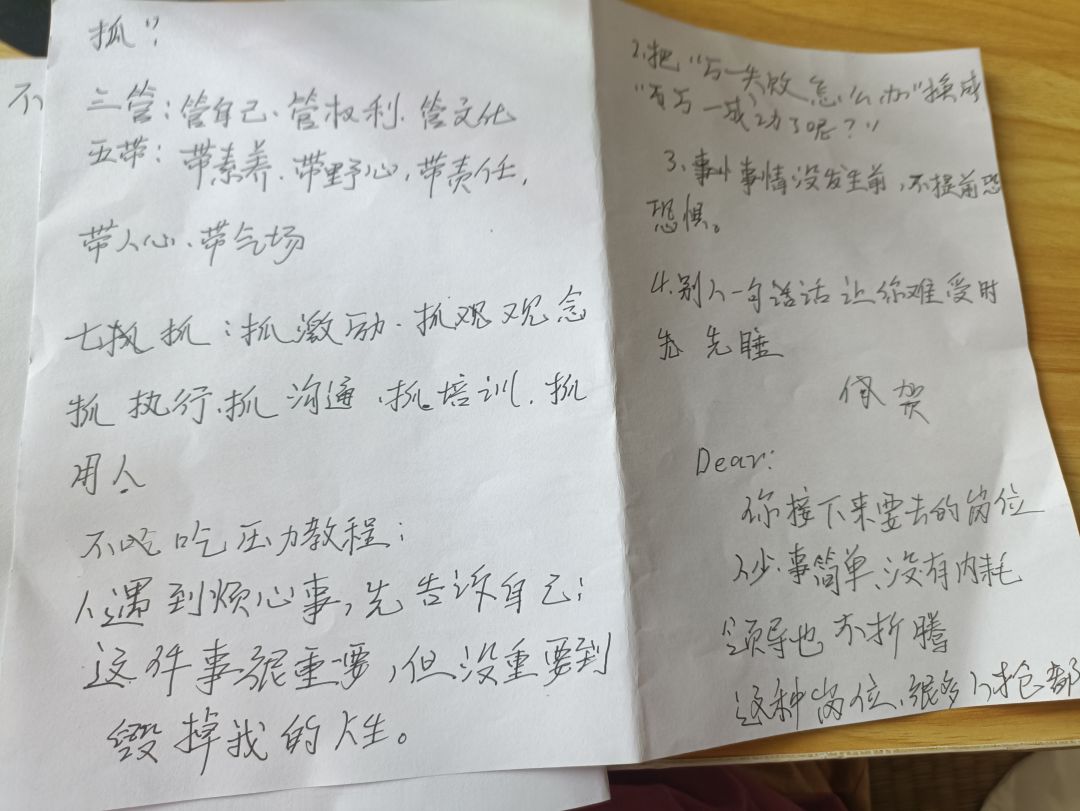 抓":
三管：管自己、管权利、管文化
五带：带素养、带野心，带责任，
带人心、带气场
七抓：抓激励、抓观观念
抓执行、抓沟通、抓培训、抓
用人
不吃压力教程：
1、遇到烦心事，先告诉自己：
这件事很重要，但没重要到
毁掉我的人生。
2、把"万一失败怎么办"换成
"万一成功了呢？"
3、事情没发生前，不提前恐
恐惧。
4、别人一句话让你难受时
先 先睡
贺
Dear:
你接下来要去的岗位
人少、事简单、没有内耗
领导也不折腾
这种岗位、很多人抢都
不